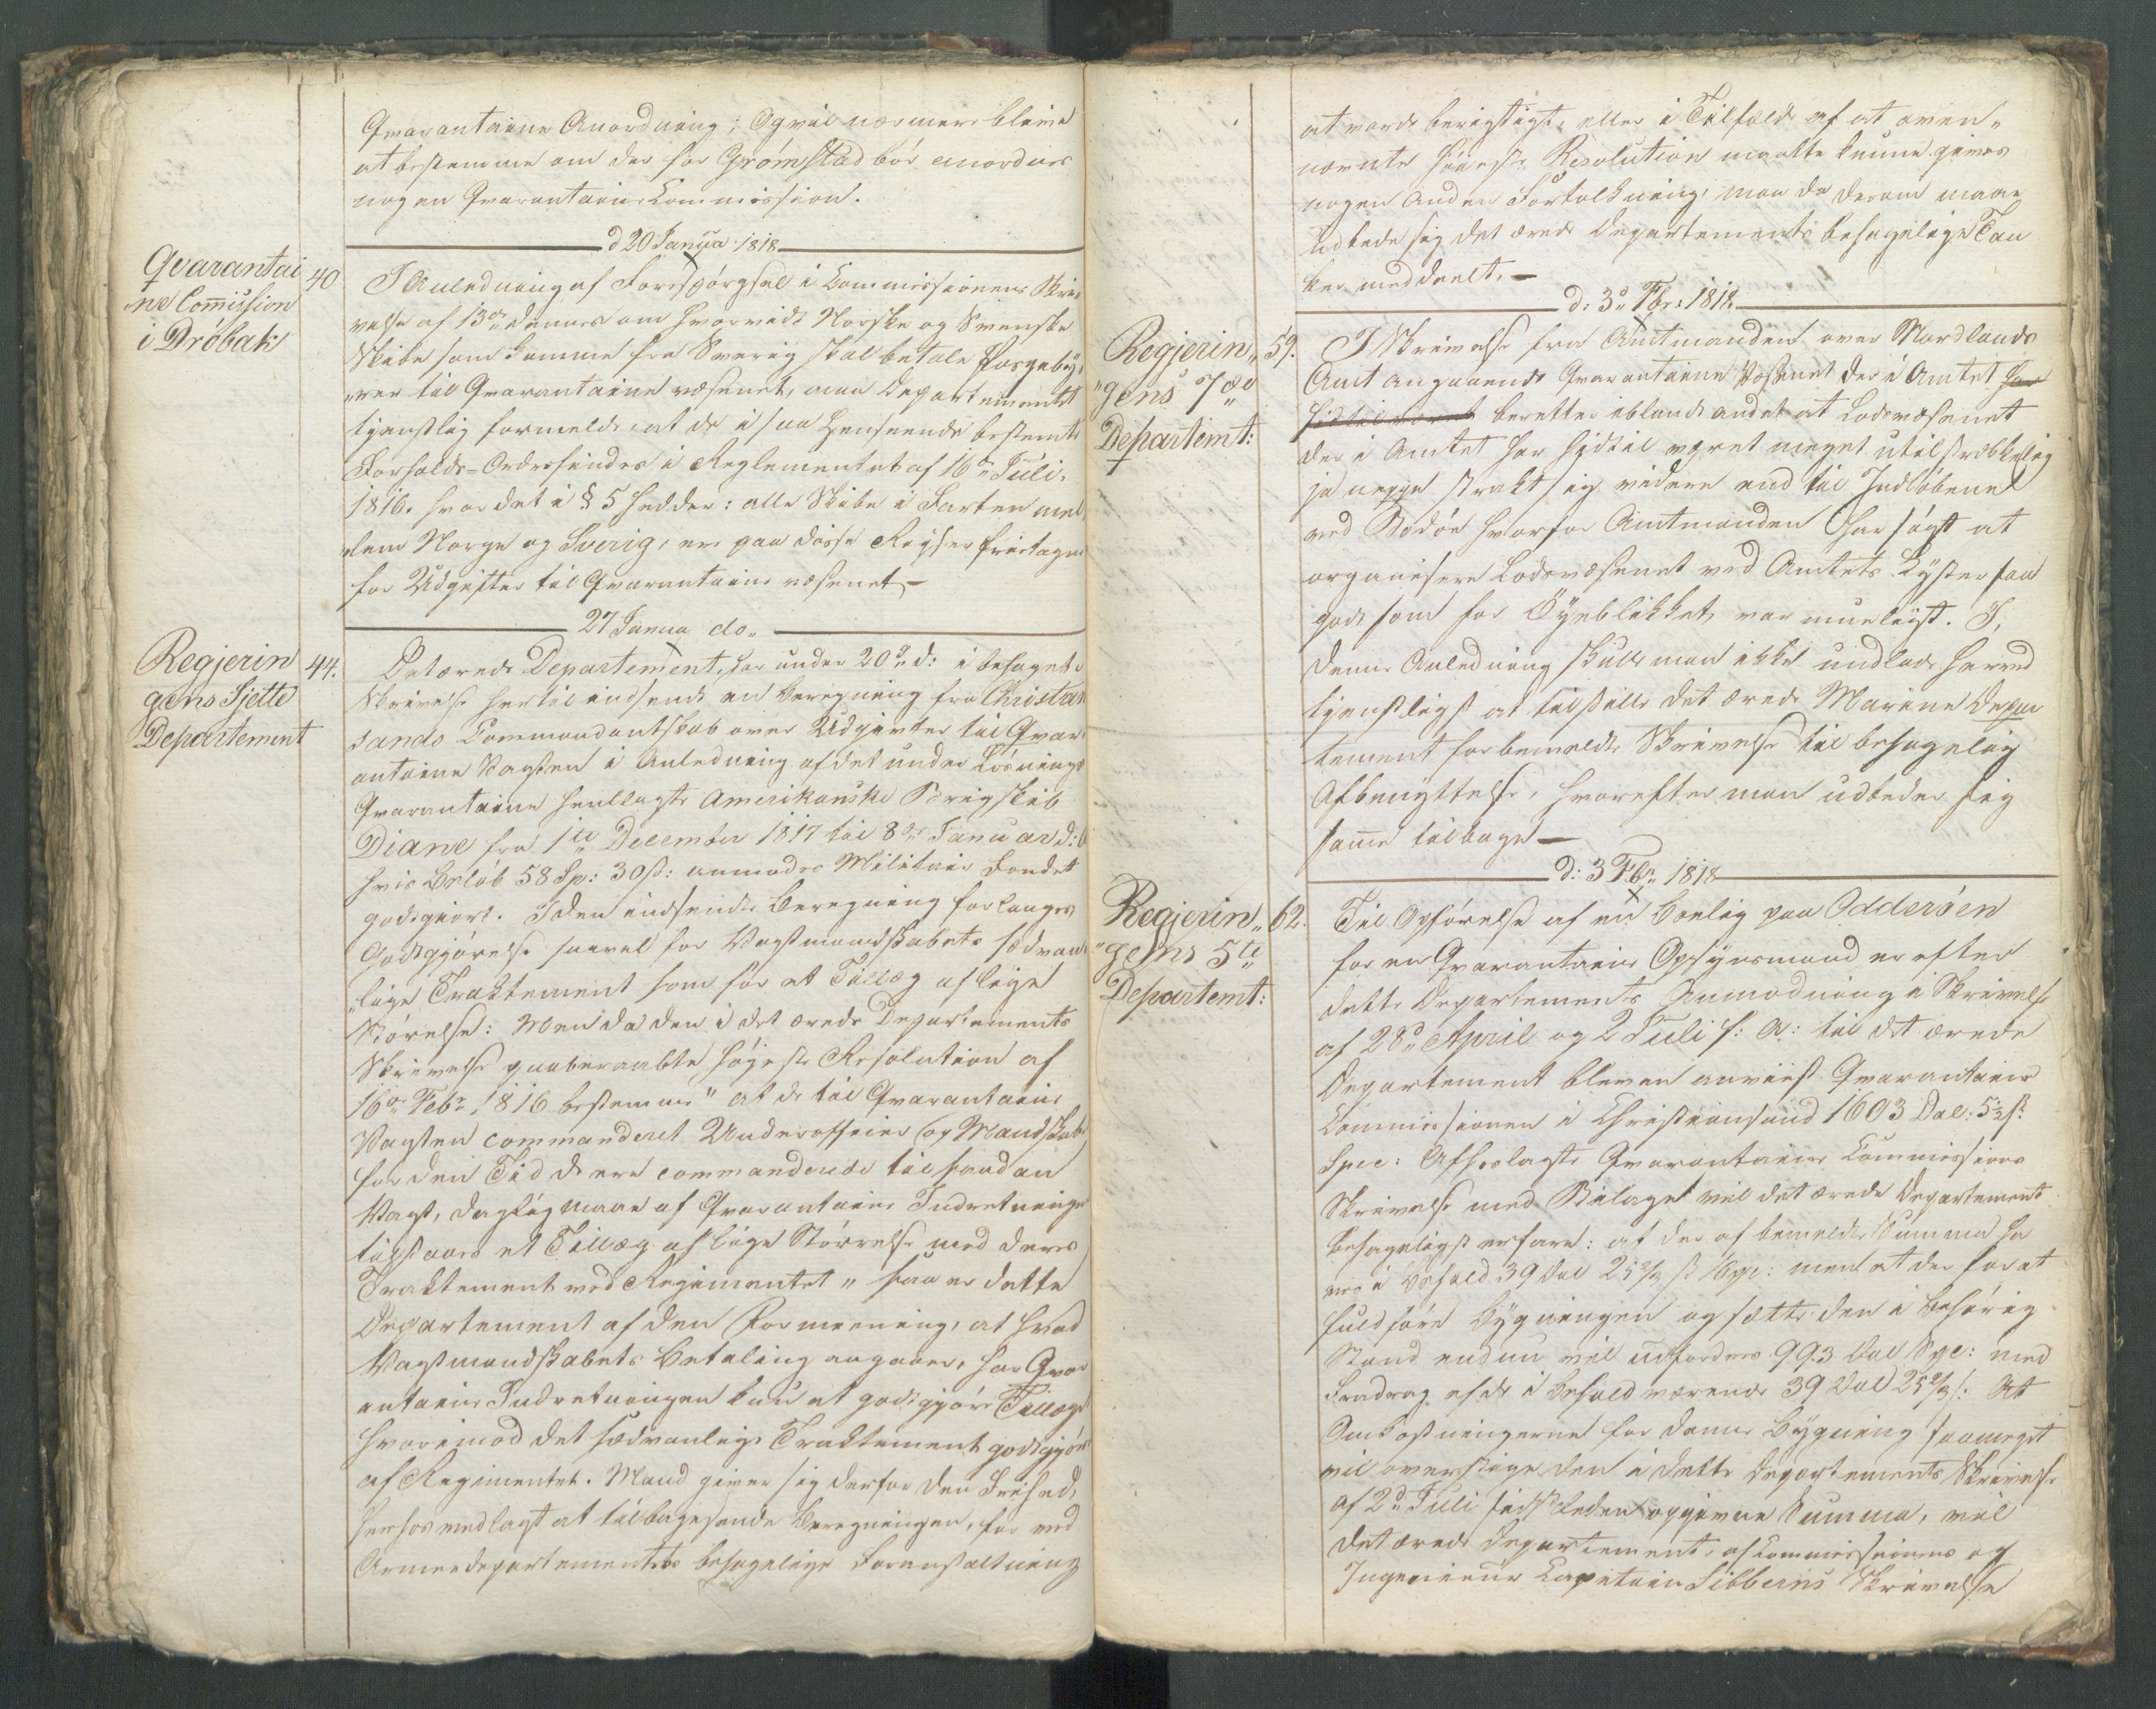 Qvarantaine Anordning; Og vil nærmere blive
at bestemme om der for Grømstad bør anordnes
nogen Qvarantaine Commission.
d 20 Janua 1818
Qvarantai
ne Comission
i Drøbak
40
I Anledning af Forespørgsel i Commissionens Skri
velse af 13de dennes om hvorvidt Norske og Svenske
Skibe som komme fra Sverig skal betale
til Qvarantaine væsenet, maa Departementet
tjenstlig formelde, at de i saa Henseende bestemte
Forholds-Ordre findes i Reglementet af 16de Juli
1816. hvor det i § 5 hedder: alle Skibe i Farten mel
lem Norge og Sverig, er paa disse Reyser fritagne
for Udgifter til Qvarantaine væsenet –
27 Janua do.
Regjerin
gens Sjette
Departement
44.
Det ærede Departement, har under 20de d: i behagelig
Skrivelse hertil indsendt en Beregning fra Christian
sands Commandantskab over Udgivter til Qvar
antaine Vagten i Anledning af det under Losnings
Qvarantaine henlagte Amerikanske Brigskib
Diane fra 1te December 1817 til 8de Januar d: A
hvis Beløb 58 Sp: 30 ß: anmodes Militair Fondet
godtgiort. I den indsendte Beregning forlanges
Godtgjørelse saavel for Vagtmandskabets sædvan
lige Traktement som for et Tillæg af lige
Størelse: Men da den i det ærede Departements
Skrivelse paaberaabte høieste Resolution af
16de Febr 1816 bestemmer "at de til Qvarantaine
Vagten commanderet Underofficier og Mandskab
for den Tid de ere commanderede til saadan
Vagt, daglig maae af Qvarantaine Indretningen
tilstaaes et Tillæg af lige Størrelse med deres
Traktement ved Regimentet" saa er dette
Departement af den Formeening, at hvad
Vagtmandskabets Betaling angaaer, har Qvar
antaine Indretningen kun at godtgjøre Tillæget
hvorimod det sædvanlige Traktement godtgjøres
af Regimentet. Mand giver sig derfor den Frihed,
herhos medlagt at tilbagesende Beregningen, for ved
Armeedepartementets behagelige Foranstaltning
at vorde berigtiget, eller i Tilfælde af at oven„
nævnte høieste Resolution maatte kunne gives
nogen anden Fortolkning, maa da derom maae
udbede sig det ærede Departements behagelige Tan
ker meddeelt. –
d: 3de Fbr: 1818
Regjerin„
„gens 7de
Departemt:
59.
I Skrivelse fra Amtmanden over Nordlands
Amt angaaende Qvarantaine Væsenet der i Amtet har
hidtil været beretter iblandt andet at Lodsvæsenet
der i Amtet har hidtil været meget utilstrækkelig
ja neppe strakt sig videre end til Indløbene
ved Bodøe hvorfor Amtmanden har søgt at
organisere Lodsvæsenet ved Amtets Kyster saa
godt som for Øyeblikket var mueligst. I,
denne Anledning skulle man ikke undlade herved
tjenstligst at tilstille det ærede Marine Depar
tement forbemeldte Skrivelse til behagelig
Afbenyttelse, hvorefter man udbeder sig
samme tilbage –
d: 3 Fbr 1818
Regjerin„
„gens 5te
Departemt:
62.
Til Opførelse af en Boelig paa Odderøen
for en Qvarantaine Opsynsmand er efter
dette Departements Anmodning i Skrivelse
af 28de April og 2 Juli f: A: til det ærede
Departement bleven anviist Qvarantaine
Commissionen i Christiansand 1603 Dal: 53 ß:
Spec: Afhoslagte Qvarantaine Commissions
Skrivelse med Bilaget vil det ærede Departement
behageligst erfare: at der af bemeldte Summa ha
ves i Behold 39 Dal 25 2/3 ß Spc: men at der for at
fuldføre Bygningen og sætte den i behørig
Stand endnu vil udfordres 993 Dal Spc: med
Fradrag af de i Behold værende 39 Dal 25 2/3 ß. At
Omkostningerne for denne Bygning saameget
vil overstige den i dette Departements Skrivelse
af 2de Juli sidstleden opgivne Summa, vil
det ærede Departement, af Commissionens og
Ingenieur Capitain Sibberns Skrivelse